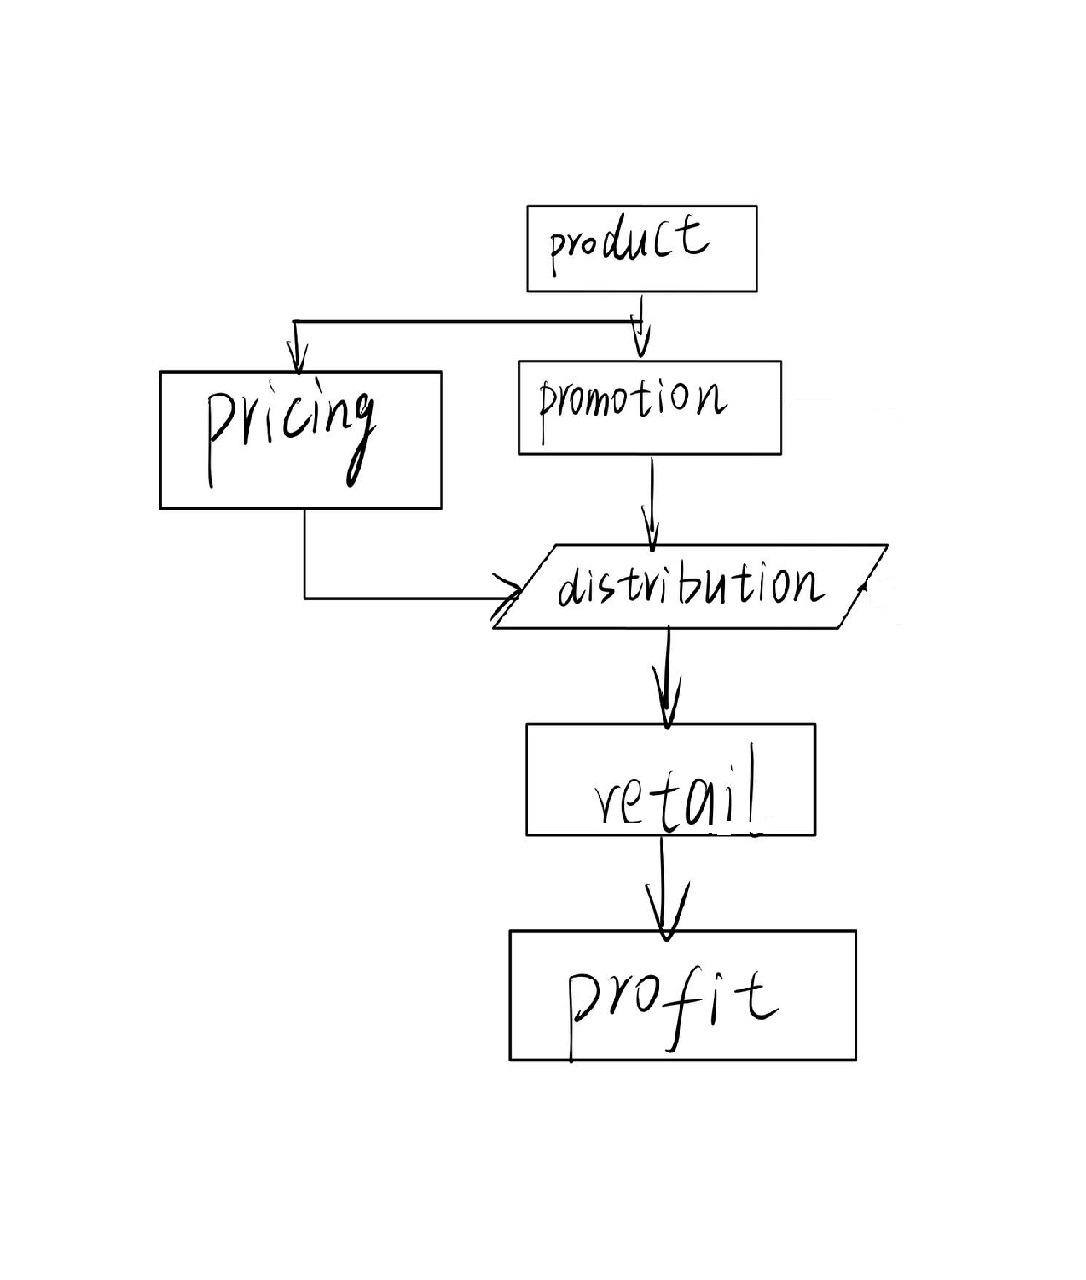 product
pricing
promotion
distribution
retail
profit